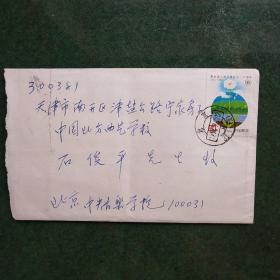 300381
天津市南开区津盐公路宁家房子
中国北方曲艺学校
石俊平先生收
北京中央音乐学院 100031